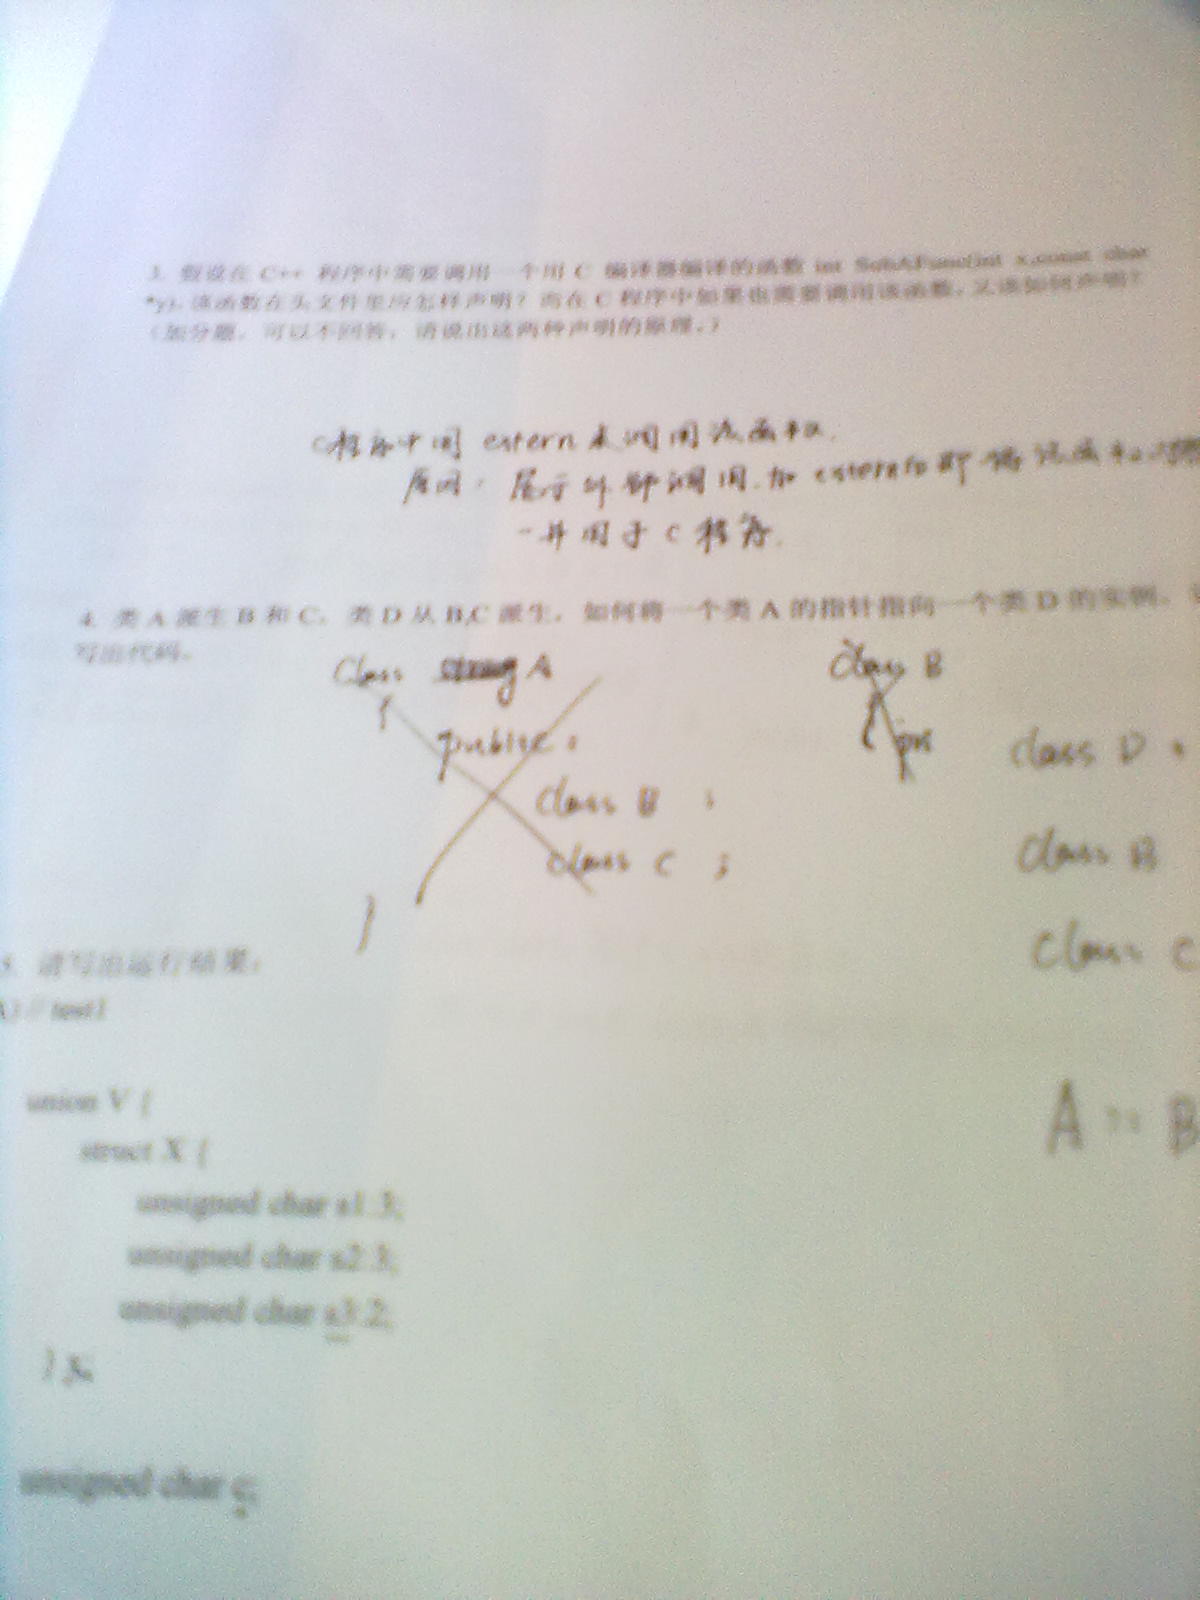 3. 假设在 C++ 程序中需要调用一个用 C 编译器编译的函数 int SubAFunc(int x,const char
*y), 该函数在头文件里应怎样声明？而在 C 程序中如果也需要调用该函数，又该如何声明？
（加分题，可以不回答，请说出这两种声明的原理。）
C程序中用 extern 来调用该函数.
原因: 展示外部调用. 加 即将该函数
一并用于 C 程序.
4. 类 A 派生 B 和 C，类 D 从 B,C 派生，如何将一个类 A 的指针指向一个类 D 的实例，
写出代码。
Class A
{
public :
class B ;
class C ;
}
class B
{
class D :
class B
class C
A B
5. 请写出运行结果：
A) // test1
union V {
struct X {
unsigned char s1:3;
unsigned char s2:3;
unsigned char s3:2;
} x;
unsigned char c;